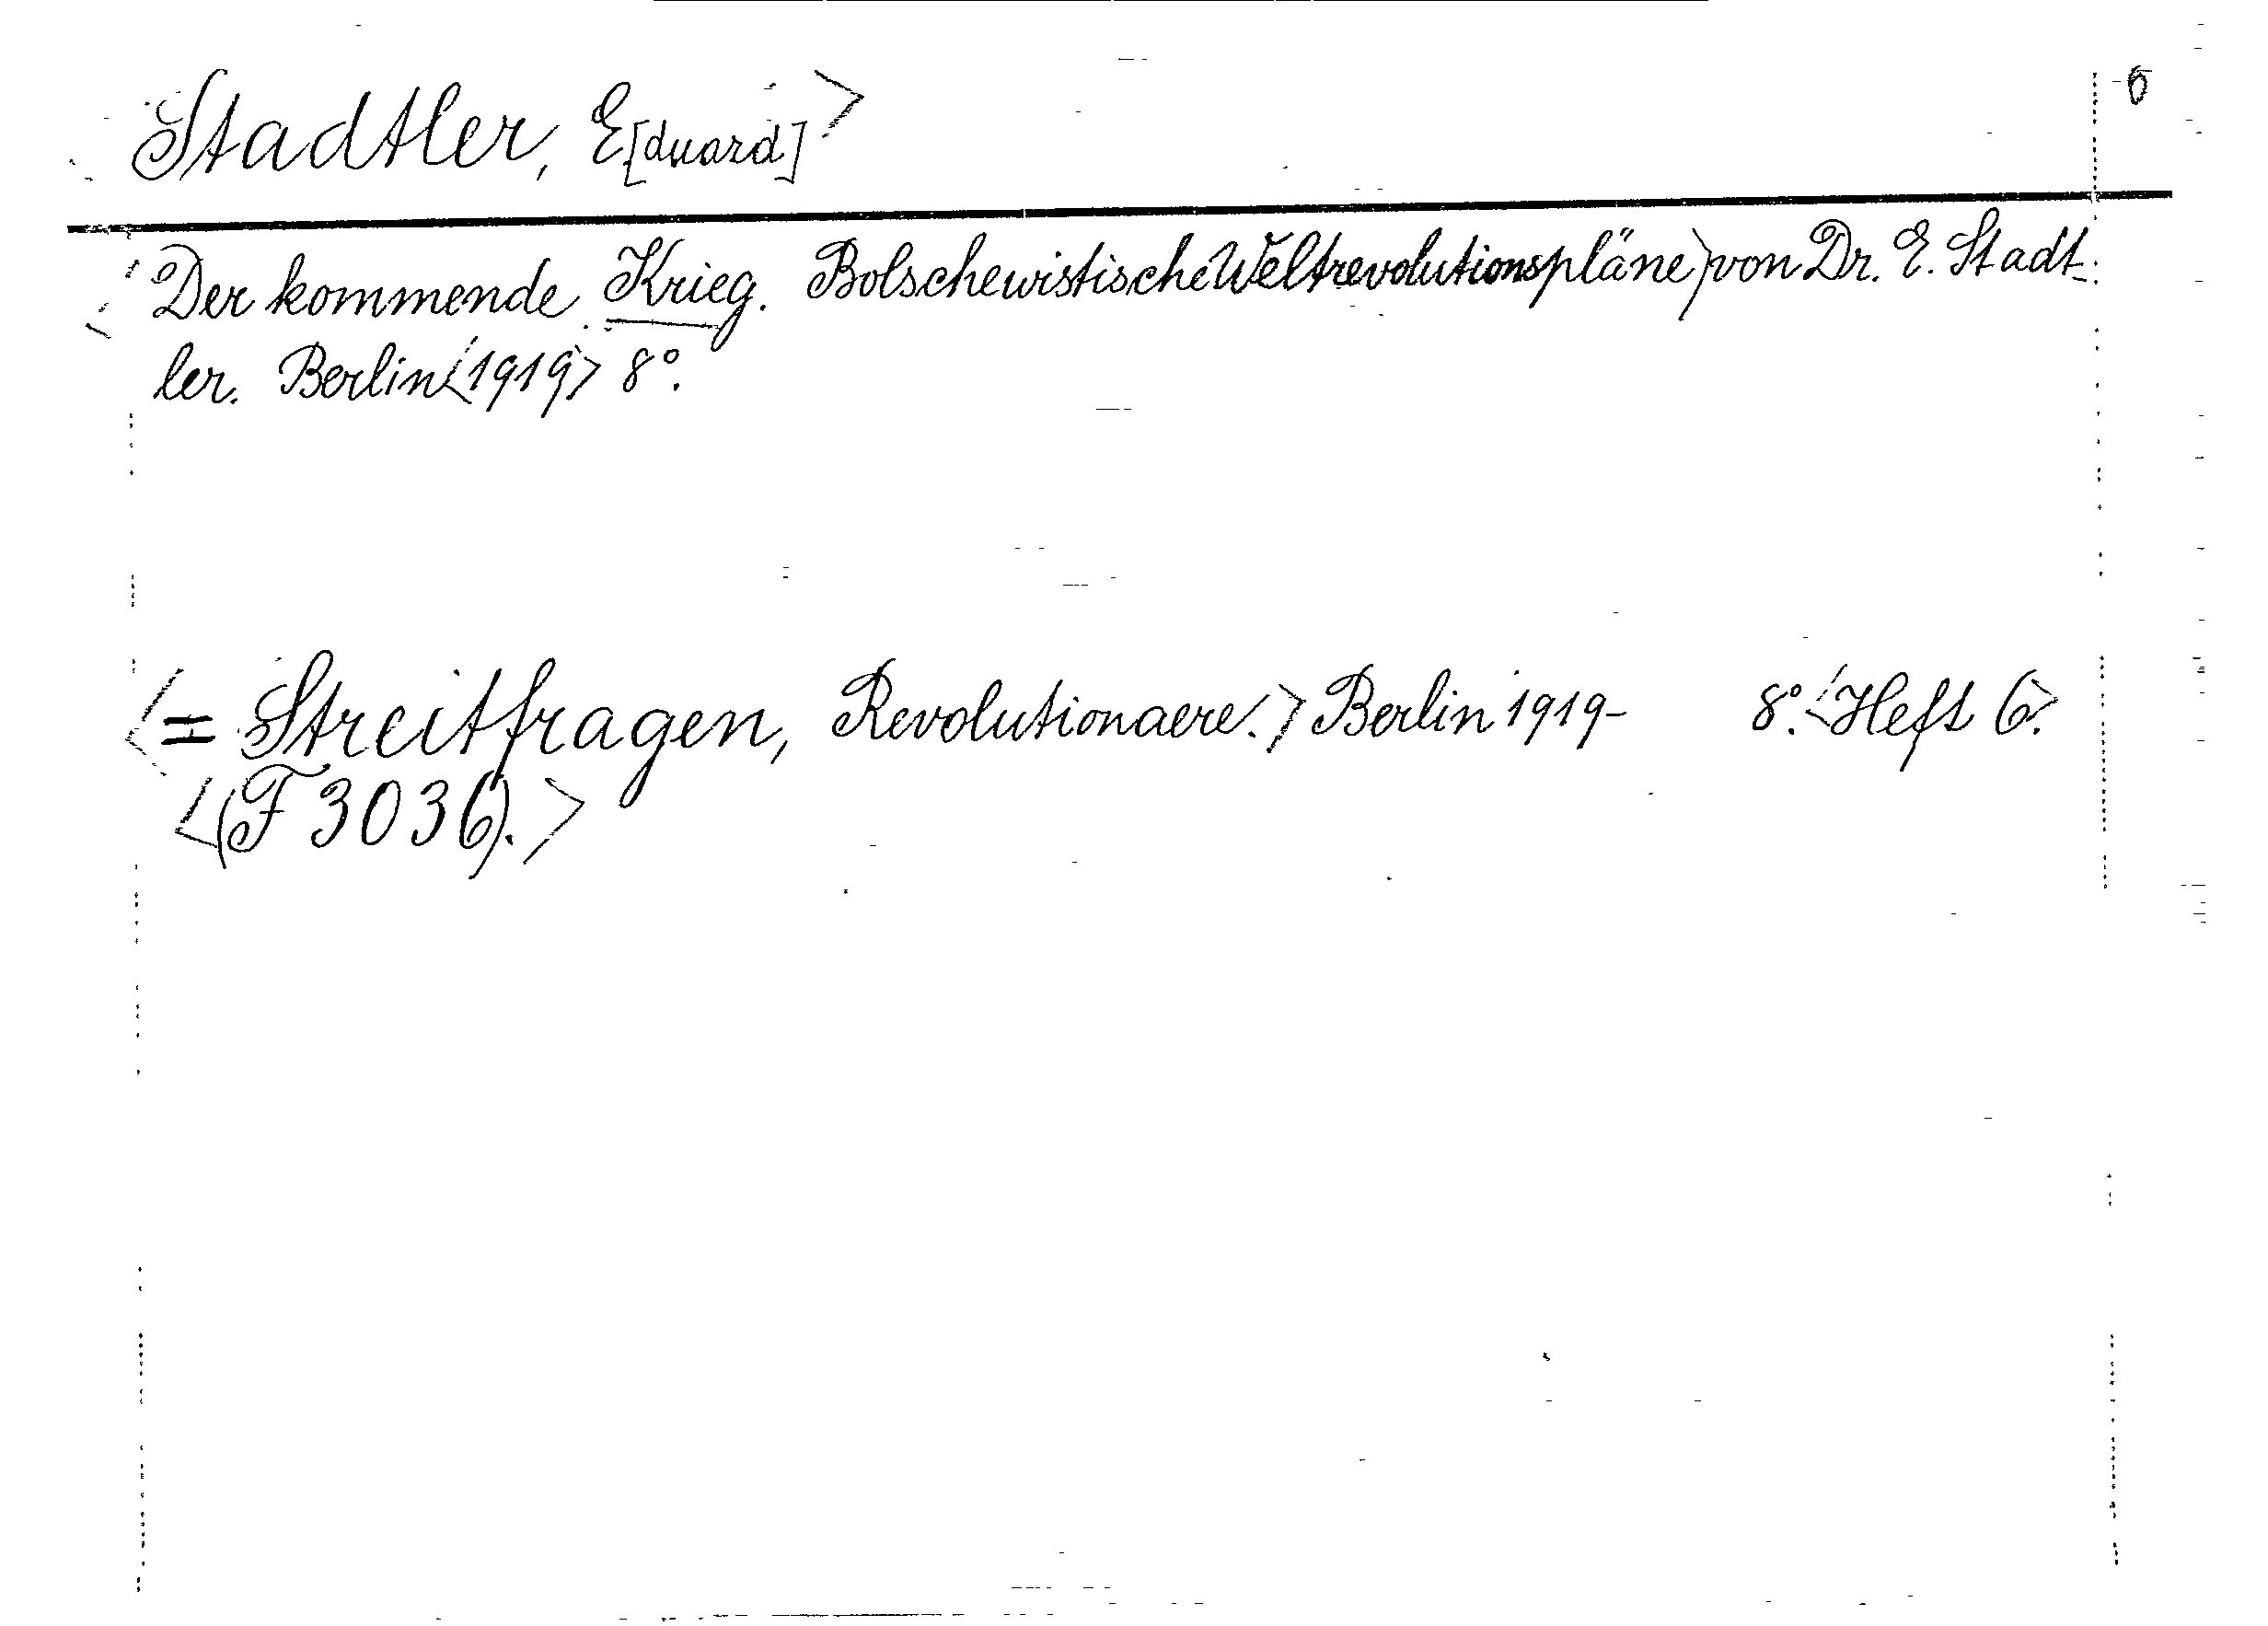 Stadtler, E[duard]> 6
<Der kommende Krieg. Bolschewistische Weltrevolutionspläne> von Dr. E. Stadt-
ler. Berlin <1919> 8°.
<= Streitfragen, Revolutionaere.> Berlin 1919- 8°. <Heft 6.>
<(F 3036).>